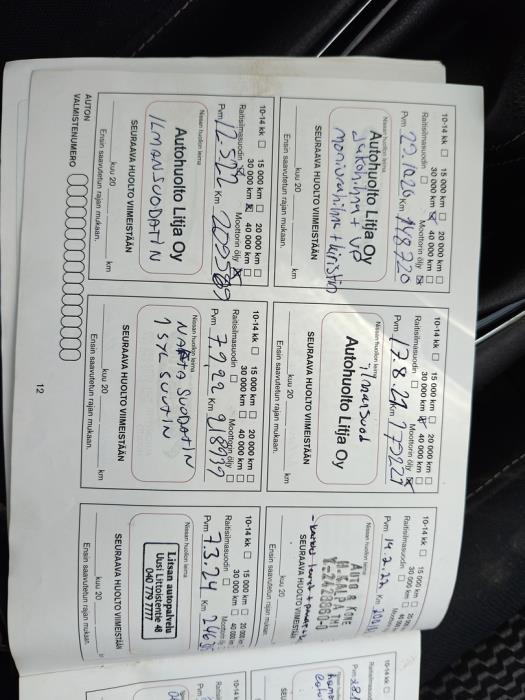 10-14 kk 15 000 km 20 000 km
30 000 km 40 000 km
Raitisilmasuodin Moottorin öljy
Pvm 22.10.20 Km 148720
Nissan huollon leima
Autohuolto Litja Oy
jakohihna + VP
moniurahihna + kiristin
SEURAAVA HUOLTO VIIMEISTÄÄN
kuu 20 km
Ensin saavutetun rajan mukaan.
10-14 kk 15 000 km 20 000 km
30 000 km 40 000 km
Raitisilmasuodin Moottorin öljy
Pvm 17.8.21 Km
Nissan huollon leima
ilmansuod
Autohuolto Litja Oy
SEURAAVA HUOLTO VIIMEISTÄÄN
kuu 20 km
Ensin saavutetun rajan mukaan.
10-14 kk 15 000 km
30 000 km
Raitisilmasuodin
Pvm 14.2.22 Km
Nissan huollon leima
AUTO & KONE
SEURAAVA HUOLTO VIIMEISTÄÄN
kuu 20
Ensin saavutetun rajan mukaan.
10-14 kk 15 000 km 20 000 km
30 000 km 40 000 km
Raitisilmasuodin Moottorin öljy
Pvm 12.5.22 Km 209589
Nissan huollon leima
Autohuolto Litja Oy
ILMANSUODATIN
SEURAAVA HUOLTO VIIMEISTÄÄN
kuu 20 km
Ensin saavutetun rajan mukaan.
10-14 kk 15 000 km 20 000 km
30 000 km 40 000 km
Raitisilmasuodin Moottorin öljy
Pvm 7.9.22 Km 218999
Nissan huollon leima
NAFTA SUODATIN
1 SYL SUUTIN
SEURAAVA HUOLTO VIIMEISTÄÄN
kuu 20 km
Ensin saavutetun rajan mukaan.
10-14 kk 15 000 km 20 000 km
30 000 km 40 000 km
Raitisilmasuodin Moottorin öljy
Pvm 7.3.24 Km
Nissan huollon leima
Litsan autopalvelu
Uusi Littoistentie 48
040 779 7777
SEURAAVA HUOLTO VIIMEISTÄÄN
kuu 20
Ensin saavutetun rajan mukaan.
AUTON
VALMISTENUMERO
12